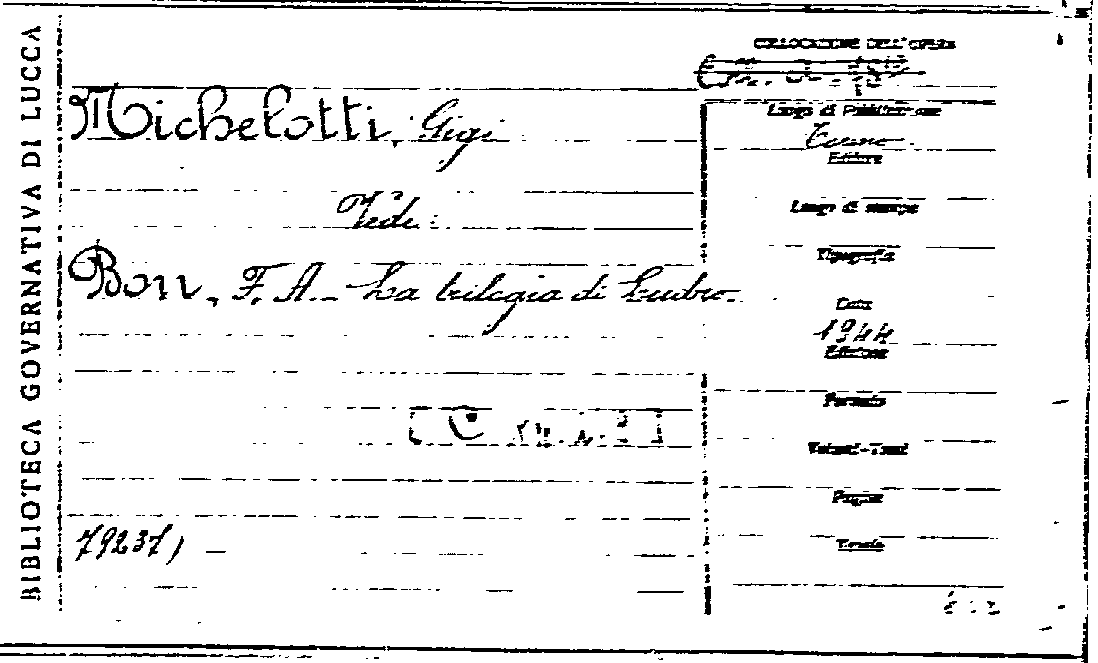 BIBLIOTECA GOVERNATIVA DI LUCCA
Michelotti, Gigi
Vede:
Bon, F. A. - La trilogia di Ludro.
79237)
COLLOCAZIONE DELL'OPERA
Luogo di Pubblicazione
Torino
Editore
Luogo di stampa
Tipografia
Data
1944
Edizione
Formato
Volumi-Tomi
Pagine